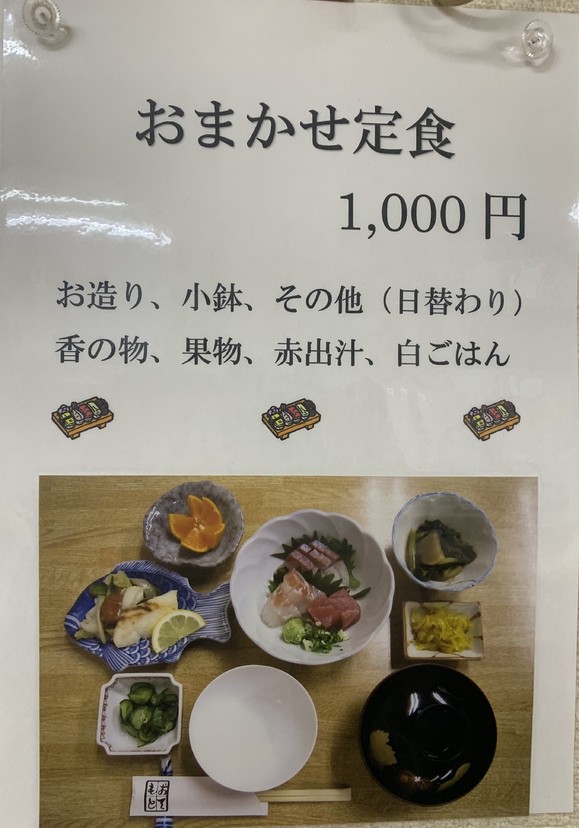 おまかせ定食
1,000 円
お造り、小鉢、その他（日替わり）
香の物、果物、赤出汁、白ごはん
おてもと